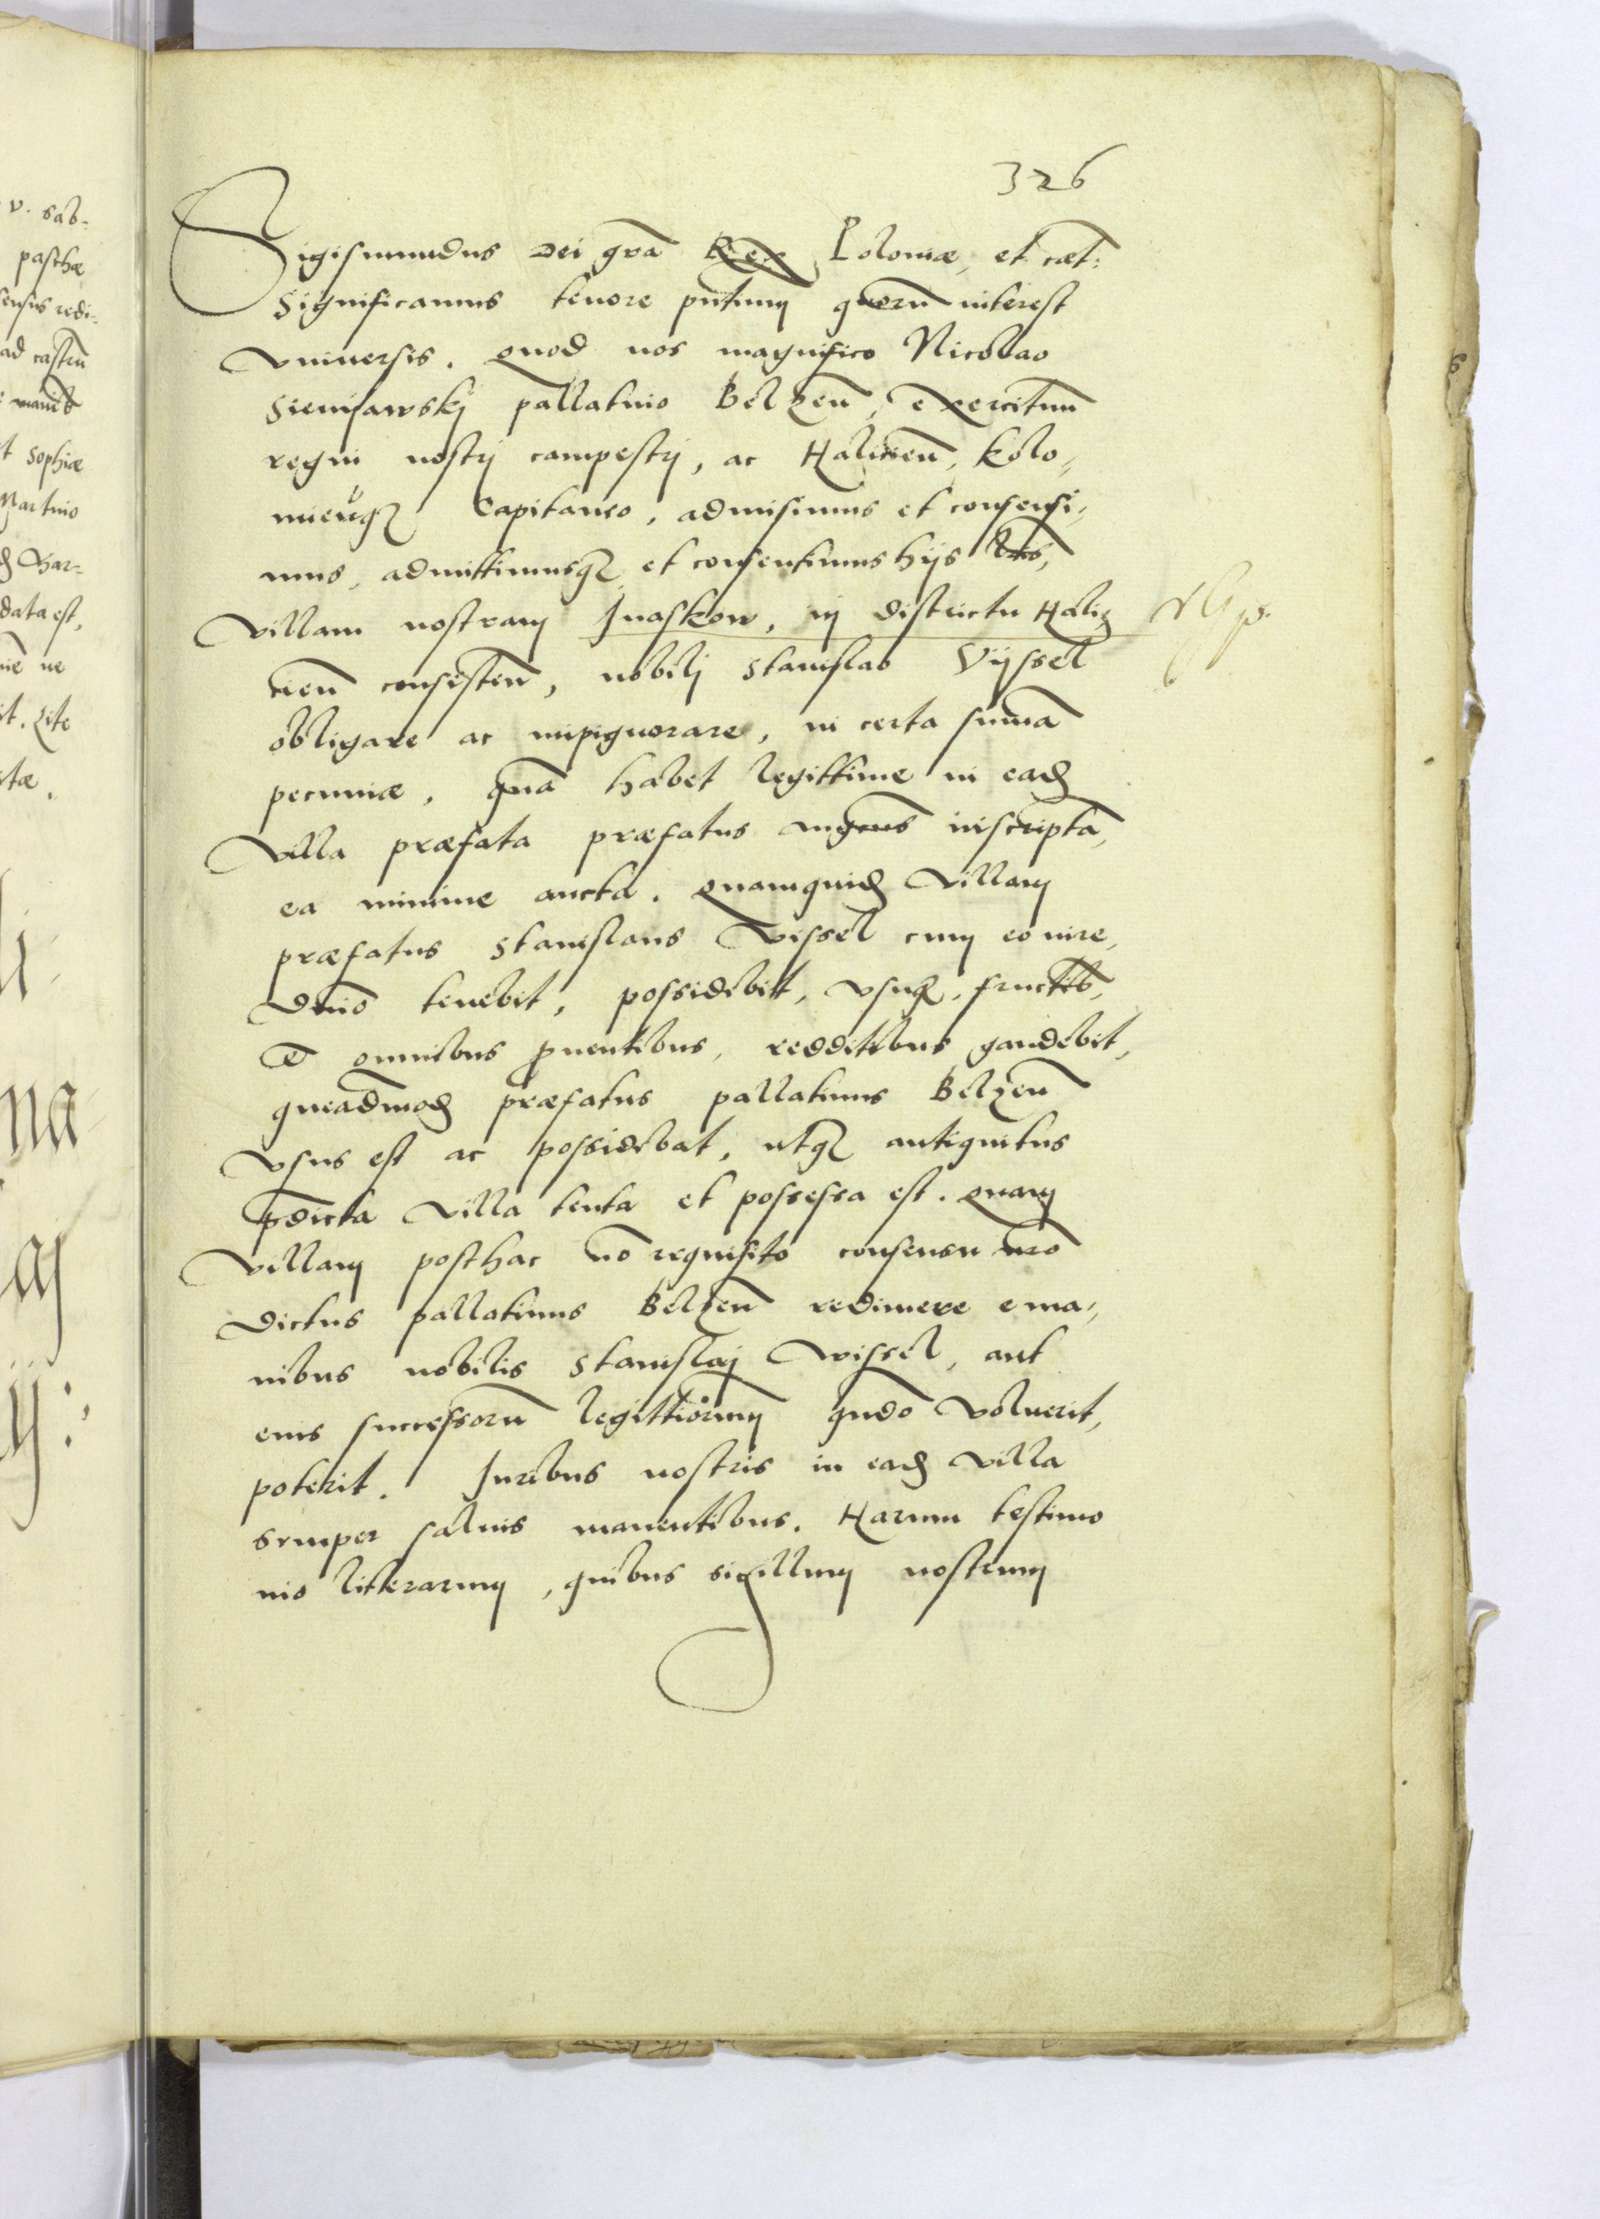 326
Sigismundus Dei gr̃a Rex Poloniæ, et cæt:
Significamus tenore pñtium quorũ interest
Vniuersis. Quod nos magnifico Nicolao
Sieniawskj pallatino Belzeñ, exercituũ
regni nostrj campestrj, ac Halicieñ, Kolo,,
mieñq3 Capitaneo, admisimus et consensi,,
mus, admittimusq3 et consentimus hijs lr̃is,
Villam nostram Jvaskow, in districtu Halic
cieñ consisteñ, nobilj Stanislao Vijssel
obligare ac inpignorare, in certa sum̃a
pecuniæ, quã habet legittime in ead3
Villa præfata præfatus inscriptã,
ea minime aucta. Quamquid3 Villam
præfatus Stanislaus Vissel cum eo iure,
Dñio tenebit, possidebit, vsuq3, fructib3,
et omnibus ꝓuentibus, redditibus gaudebit,
queadmod3 præfatus pallatinus Belzeñ
vsus est ac possidebat, utq3 antiquitus
p̃dicta Villa tenta et possessa est. Quam
Villam posthac nõ requisito consensu nr̃o
Dictus pallatinus Belzeñ redimere e ma,,
nibus nobilis Stanislaj Wissel, aut
eius successorũ legittiorum qñdo voluerit,
poterit. Juribus nostris in ead3 Villa
semper saluis manentibus. Harum testimo
nio litterarum, quibus sigillum nostrum